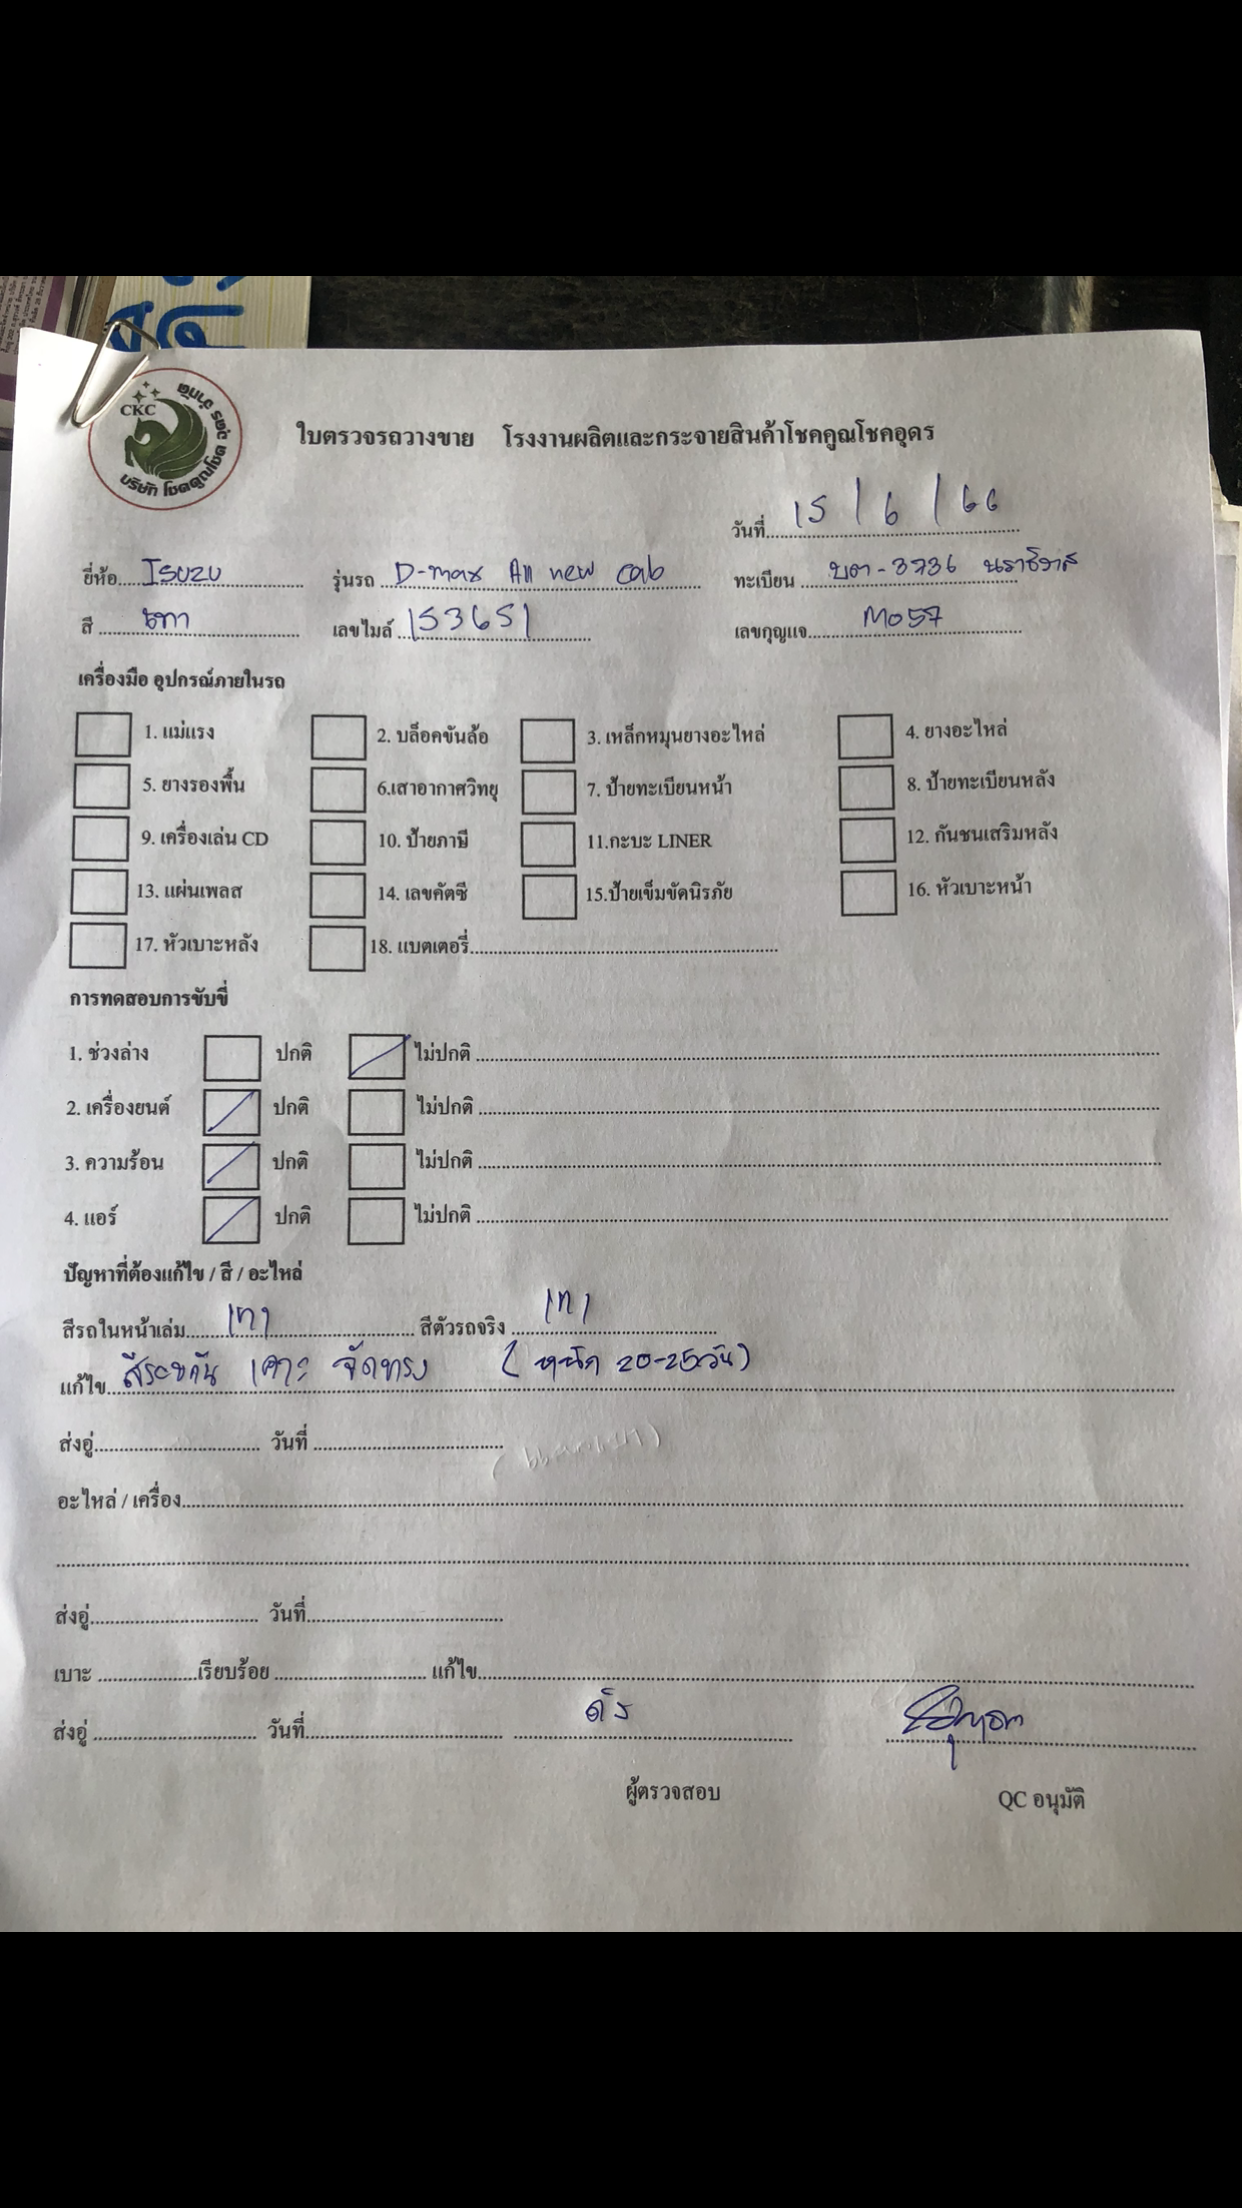 CKC
บริษัท โชคคูณโชค อุดร จำกัด
ใบตรวจรถวางขาย โรงงานผลิตและกระจายสินค้าโชคคูณโชคอุดร
วันที่ 15 / 6 / 66
ยี่ห้อ Isuzu รุ่นรถ D-max All new cab ทะเบียน บต-3736 นราธิวาส
สี เทา เลขไมล์ 153651 เลขกุญแจ M057
เครื่องมือ อุปกรณ์ภายในรถ
1. แม่แรง 2. บล็อคขันล้อ 3. เหล็กหมุนยางอะไหล่ 4. ยางอะไหล่
5. ยางรองพื้น 6.เสาอากาศวิทยุ 7. ป้ายทะเบียนหน้า 8. ป้ายทะเบียนหลัง
9. เครื่องเล่น CD 10. ป้ายภาษี 11.กะบะ LINER 12. กันชนเสริมหลัง
13. แผ่นเพลส 14. เลขคัตซี 15.ป้ายเข็มขัดนิรภัย 16. หัวเบาะหน้า
17. หัวเบาะหลัง 18. แบตเตอรี่
การทดสอบการขับขี่
1. ช่วงล่าง ปกติ ไม่ปกติ
2. เครื่องยนต์ ปกติ ไม่ปกติ
3. ความร้อน ปกติ ไม่ปกติ
4. แอร์ ปกติ ไม่ปกติ
ปัญหาที่ต้องแก้ไข / สี / อะไหล่
สีรถในหน้าเล่ม เทา สีตัวรถจริง เทา
แก้ไข สีรอบคัน เคาะ จัดทรง ( หนัก 20-25วัน )
ส่งอู่ วันที่
อะไหล่ / เครื่อง
ส่งอู่ วันที่
เบาะ เรียบร้อย แก้ไข
ส่งอู่ วันที่
ผู้ตรวจสอบ QC อนุมัติ